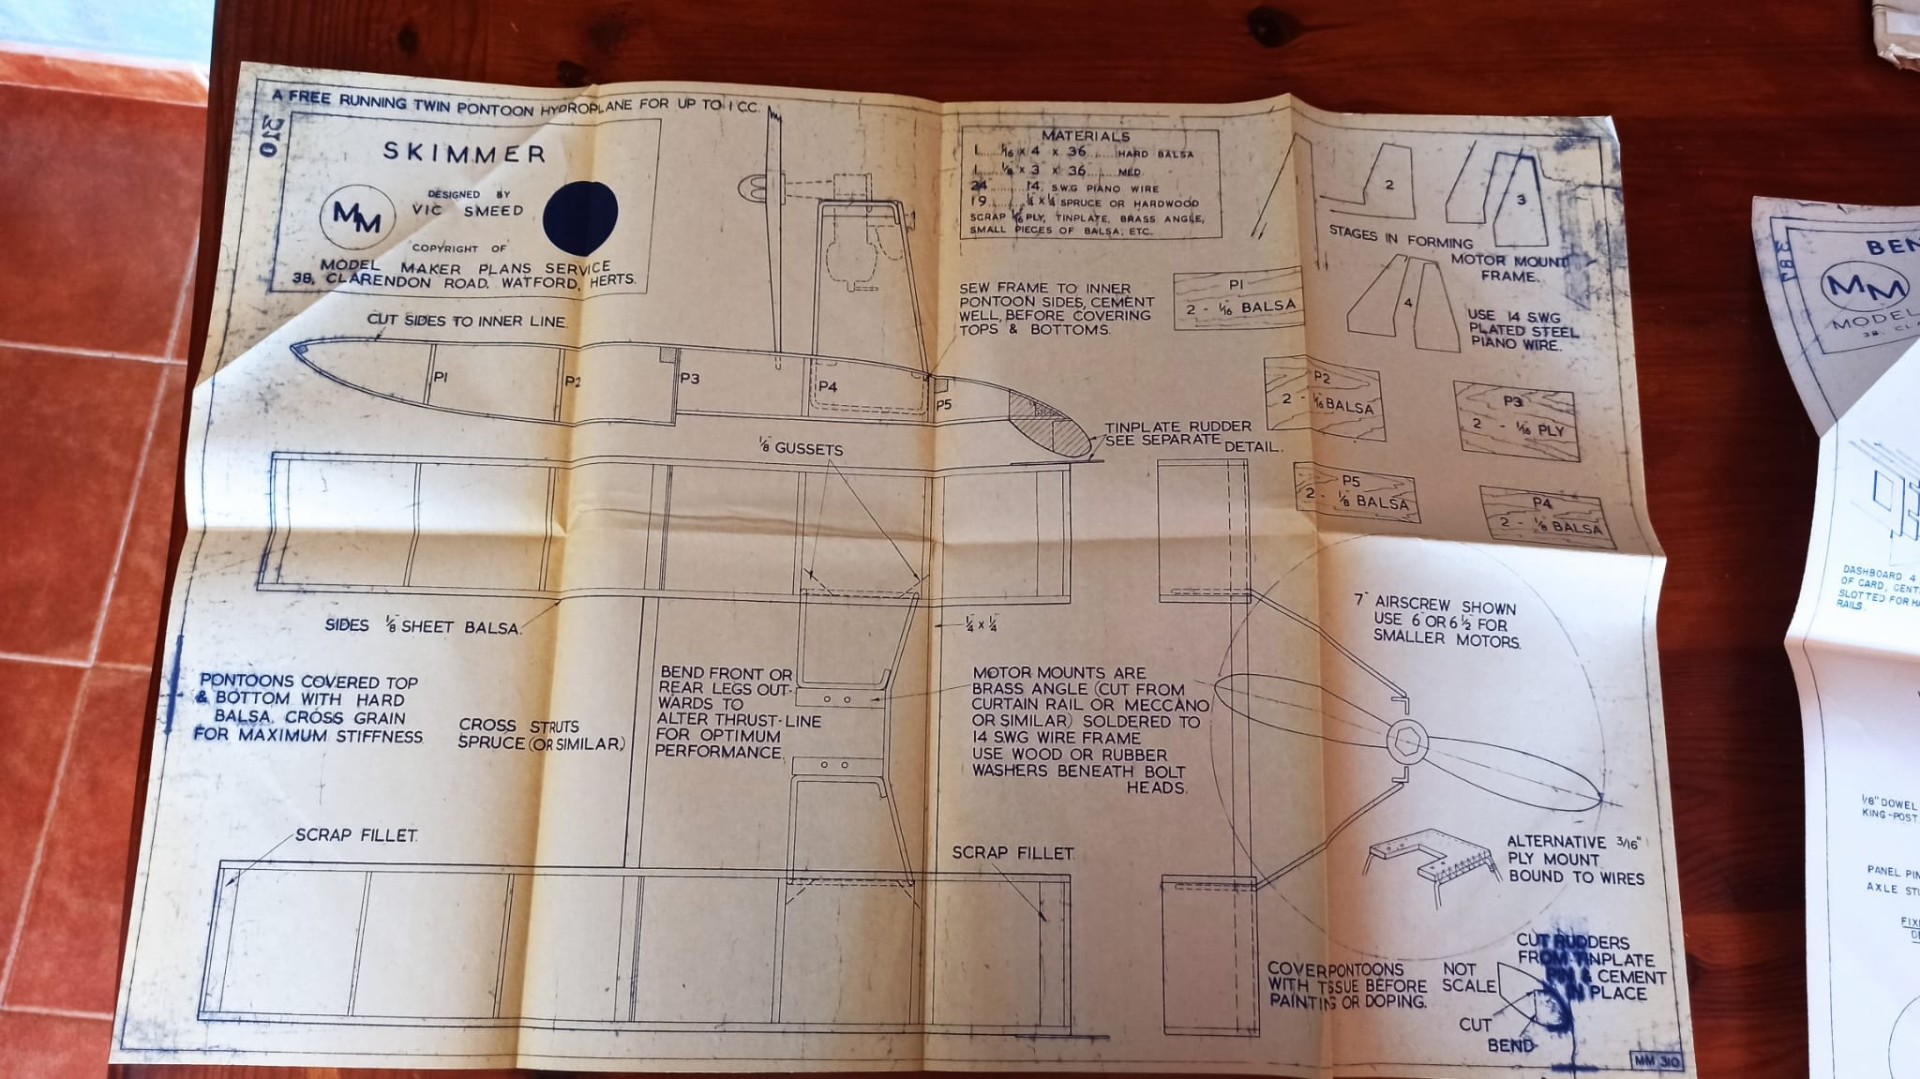 A FREE RUNNING TWIN PONTOON HYDROPLANE FOR UP TO 1 CC.
310
SKIMMER
DESIGNED BY
VIC SMEED
MM
COPYRIGHT OF
MODEL MAKER PLANS SERVICE
38, CLARENDON ROAD. WATFORD, HERTS.
MATERIALS
1 1/16 x 4 x 36 HARD BALSA
1 1/8 x 3 x 36 MED.
24 14 S.W.G PIANO WIRE
19 1/4 x 1/4 SPRUCE OR HARDWOOD
SCRAP 1/16 PLY, TINPLATE, BRASS ANGLE,
SMALL PIECES OF BALSA, ETC.
2
3
STAGES IN FORMING
MOTOR MOUNT
FRAME.
4
USE 14 S.W.G
PLATED STEEL
PIANO WIRE.
SEW FRAME TO INNER
PONTOON SIDES, CEMENT
WELL, BEFORE COVERING
TOPS & BOTTOMS.
P1
2 - 1/16 BALSA
P2
2 - 1/16 BALSA
P3
2 - 1/16 PLY
P5
2 - 1/8 BALSA
P4
2 - 1/8 BALSA
CUT SIDES TO INNER LINE.
P1
P2
P3
P4
P5
TINPLATE RUDDER
SEE SEPARATE DETAIL.
1/8" GUSSETS
SIDES 1/8" SHEET BALSA.
1/4 x 1/4
7" AIRSCREW SHOWN
USE 6" OR 6 1/2" FOR
SMALLER MOTORS.
PONTOONS COVERED TOP
& BOTTOM WITH HARD
BALSA, CROSS GRAIN
FOR MAXIMUM STIFFNESS.
CROSS STRUTS
SPRUCE (OR SIMILAR)
BEND FRONT OR
REAR LEGS OUT-
WARDS TO
ALTER THRUST-LINE
FOR OPTIMUM
PERFORMANCE.
MOTOR MOUNTS ARE
BRASS ANGLE (CUT FROM
CURTAIN RAIL OR MECCANO
OR SIMILAR) SOLDERED TO
14 SWG WIRE FRAME
USE WOOD OR RUBBER
WASHERS BENEATH BOLT
HEADS.
SCRAP FILLET.
SCRAP FILLET.
ALTERNATIVE 3/16"
PLY MOUNT
BOUND TO WIRES
COVER PONTOONS
WITH TISSUE BEFORE
PAINTING OR DOPING.
NOT
SCALE
CUT RUDDERS
FROM TINPLATE
PIN & CEMENT
IN PLACE
CUT
BEND
MM 310
387
BEN
MM
MODEL
38, CLA
DASHBOARD 4
OF CARD, CENT
SLOTTED FOR HA
RAILS.
1/8" DOWEL
KING-POST
PANEL PIN
AXLE STU
FIX